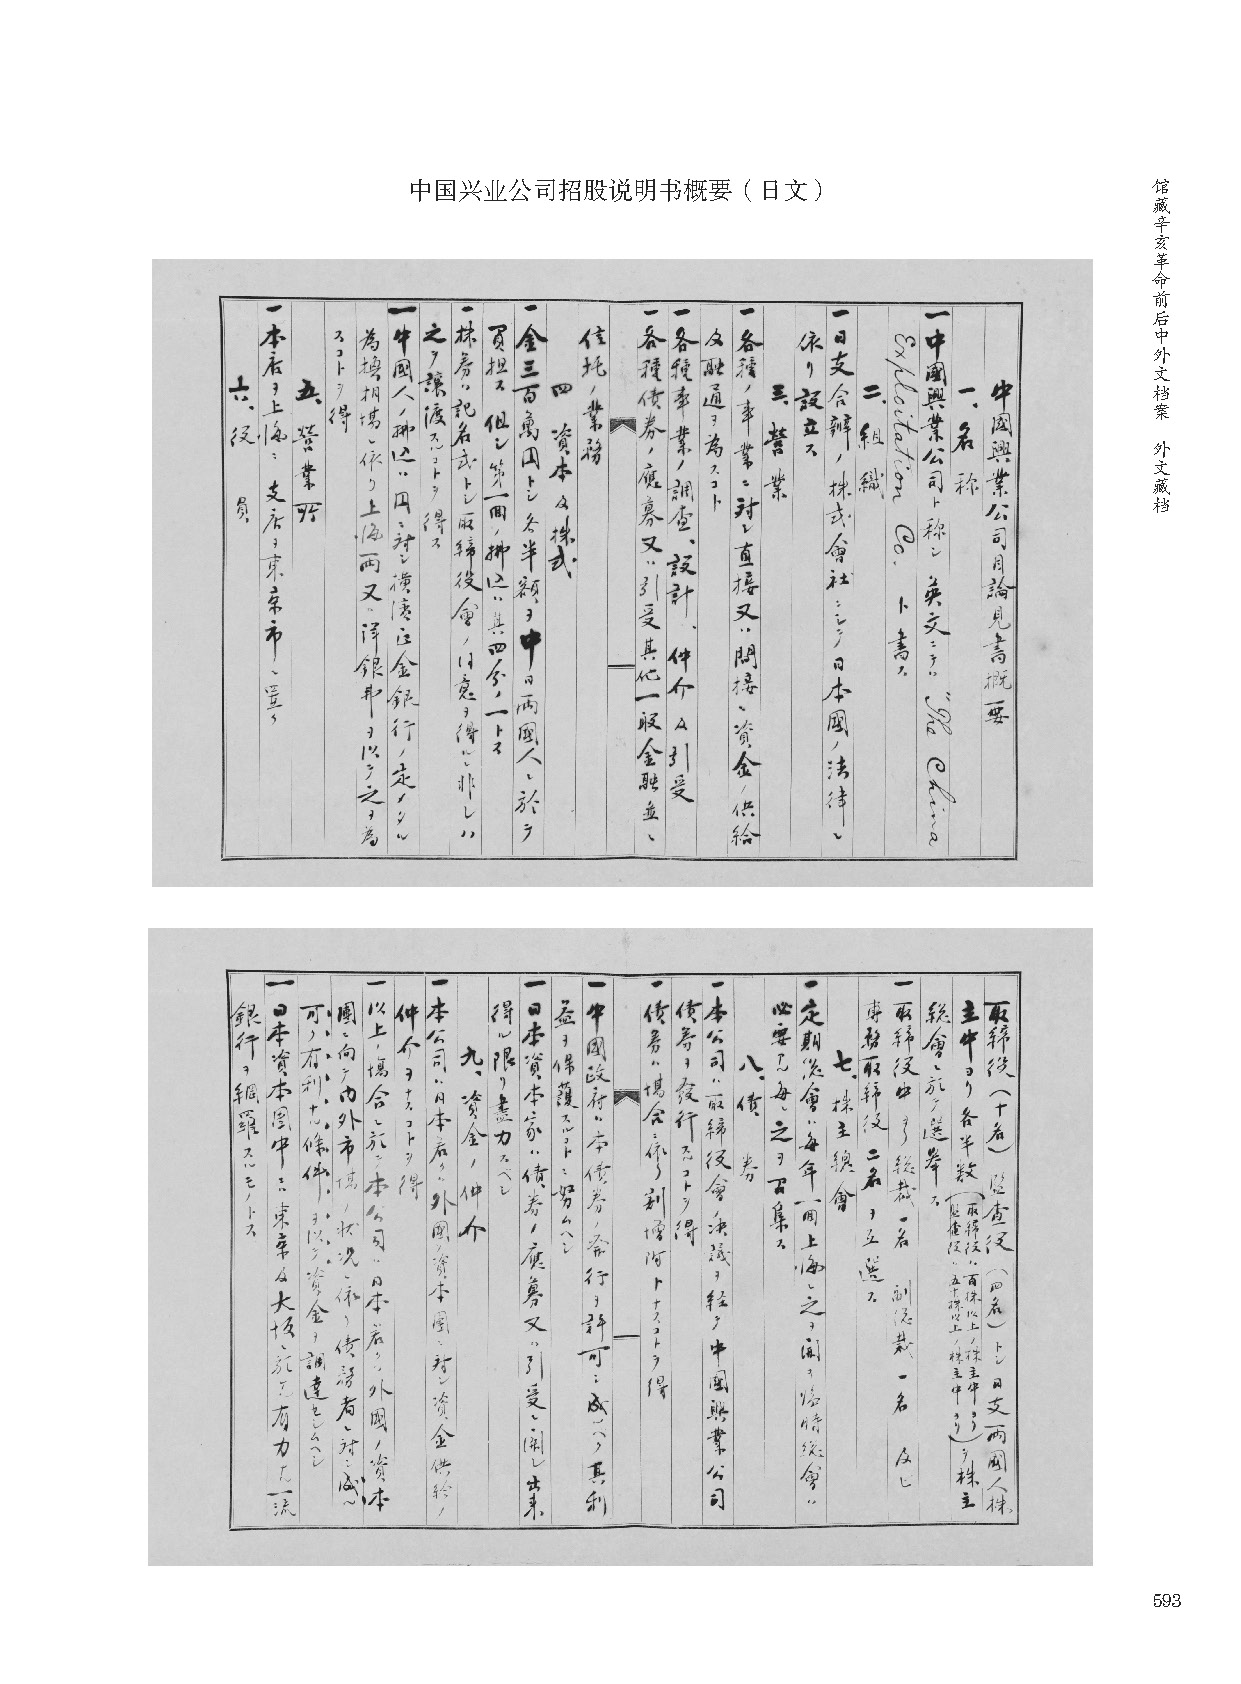 中国兴业公司招股说明书概要（日文）
馆藏辛亥革命前后中外文档案 外文藏档
中國興業公司目論見書概要
一、名称
一 中國興業公司ト称シ英文ニテハ "The China
Exploitation Co. ト書ス
二、組織
一 日支合辦ノ株式會社ニシテ日本國ノ法律ニ
依リ設立ス
三、營業
一 各種ノ事業ニ対シ直接又ハ間接ニ資金ノ供給
及融通ヲ為スコト
一 各種事業ノ調査、設計、仲介及引受
一 各種債券ノ應募又ハ引受其他一般金融並ニ
信托ノ業務
四 資本及株式
一 金三百萬円トシ各半額ヲ中日両國人ニ於テ
負担ス但シ第一回ノ拂込ハ其四分ノ一トス
一 株券ハ記名式トシ取締役會ノ同意ヲ得ルニ非レハ
之ヲ譲渡スルコトヲ得ス
一 中國人ノ拂込ハ円ニ対シ横濱正金銀行ノ定メタル
為換相場ニ依リ上海両又ハ洋銀弗ヲ以テ之ヲ為
スコトヲ得
五、營業所
一 本店ヲ上海ニ支店ヲ東京市ニ置ク
六、役員
取締役（十名）監査役（四名）トシ日支両國人株
主中ヨリ各半数（取締役ハ百株以上ノ株主中ヨリ
監査役ハ五十株以上ノ株主中ヨリ）ヲ株主
総會ニ於テ選挙ス
一 取締役中ヨリ総裁一名 副総裁一名 及ヒ
専務取締役二名ヲ互選ス
七、株主總會
一 定期総會ハ毎年一回上海ニ之ヲ開ク臨時総會ハ
必要アル毎ニ之ヲ召集ス
八、債券
一 本公司ハ取締役會ノ決議ヲ経テ中國興業公司
債券ヲ發行スルコトヲ得
一 債券ハ場合ニ依リ割増附トナスコトヲ得
一 中國政府ハ本債券ノ發行ヲ許可シ成ヘク其利
益ヲ保護スルコトニ努ムヘシ
一 日本資本家ハ債券ノ應募又ハ引受ニ関シ出来
得ル限リ盡力スベシ
九、資金ノ仲介
一 本公司ハ日本若クハ外國ノ資本團ニ対シ資金供給ノ
仲介ヲナスコトヲ得
一 以上ノ場合ニ於テ本公司ハ日本若クハ外國ノ資本
團ニ向テ内外市場ノ状況ニ依リ債務者ニ対シ成ル
可ク有利ナル條件ヲ以テ資金ヲ調達セシムヘシ
一 日本資本團中ニハ東京及大坂ニ於ケル有力ナル一流
銀行ヲ網羅スルモノトス
593